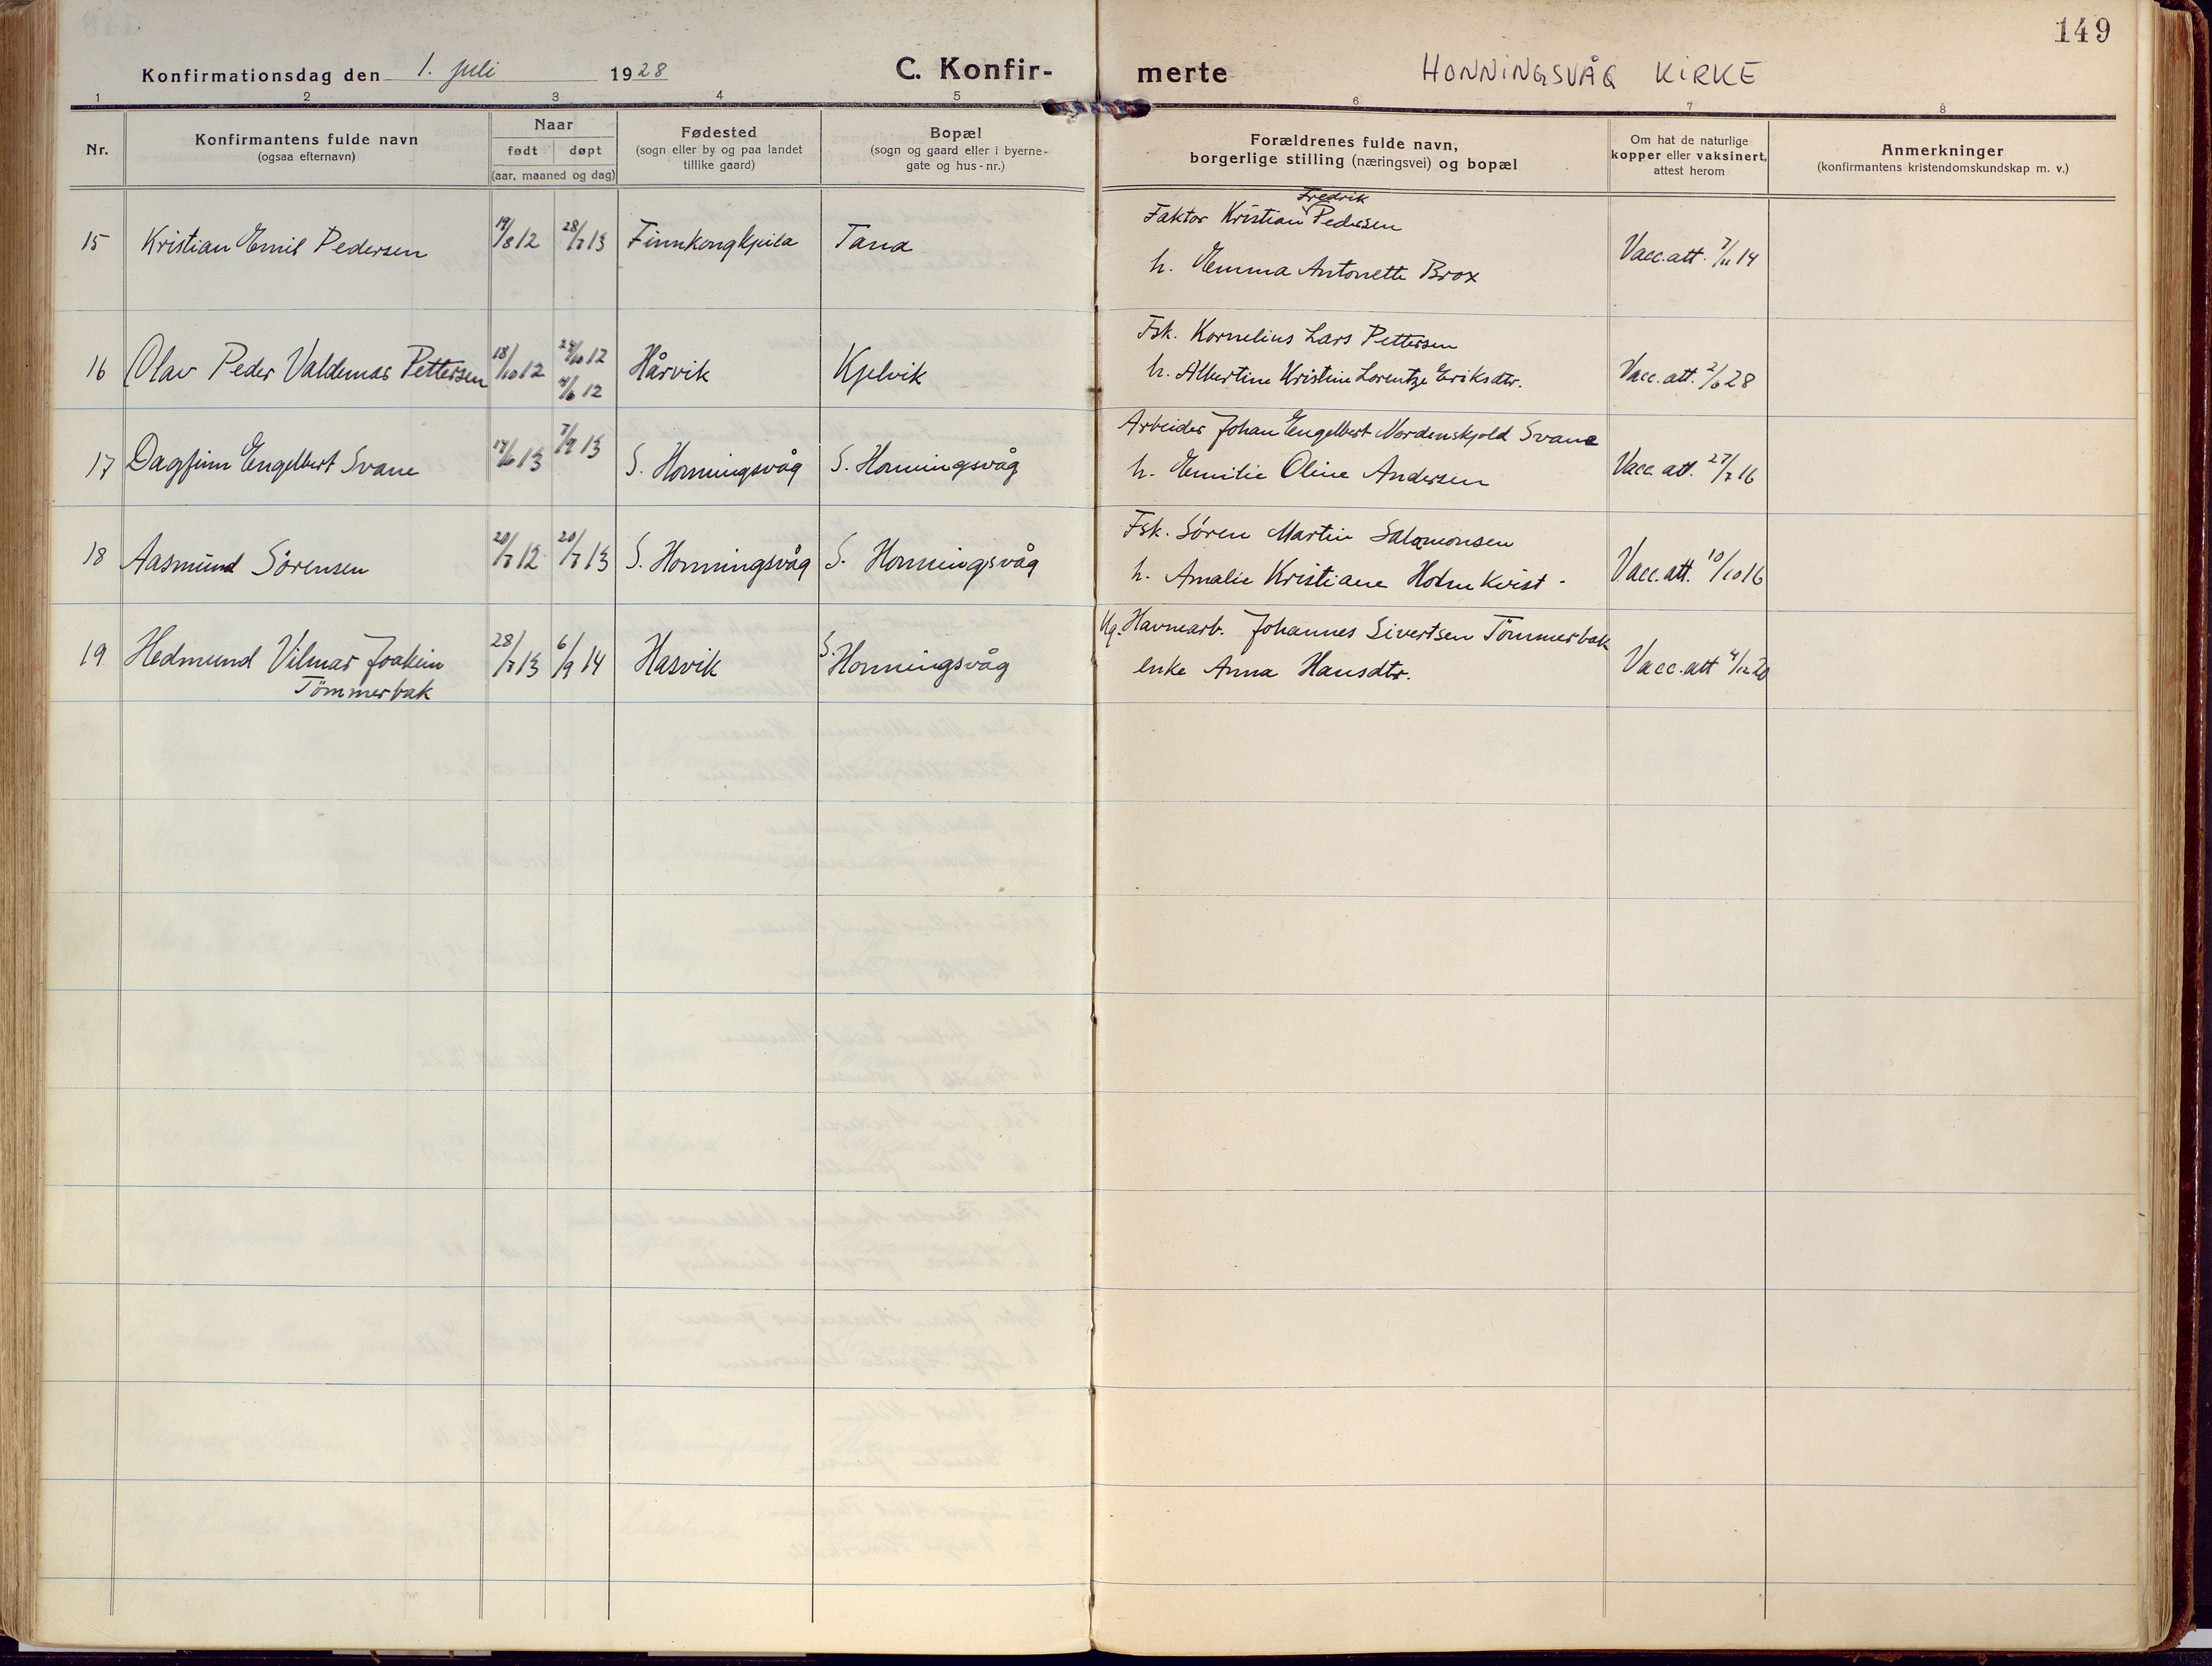 149
Konfirmationsdag den 1. juli 1928
C. Konfir-
merte
HONNINGSVÅG KIRKE
1 2 3 4 5 6 7 8
Nr.
Konfirmantens fulde navn
(ogsaa efternavn)
Naar
født døpt
(aar, maaned og dag)
Fødested
(sogn eller by og paa landet
tillike gaard)
Bopæl
(sogn og gaard eller i byerne-
gate og hus-nr.)
Forældrenes fulde navn,
borgerlige stilling (næringsvei) og bopæl
Om hat de naturlige
kopper eller vaksinert,
attest herom
Anmerkninger
(konfirmantens kristendomskundskap m. v.)
15 Kristian Emil Pedersen 19/8 12 28/7 13 Finnkongkjeila Tana
Fredrik
Faktor Kristian Pedersen
h. Emma Antonette Brox
Vacc. att. 7/11 14
16 Olav Peder Valdemar Pettersen 18/10 12 24/10 12 Hårvik Kjelvik
4/6 12
Fsk. Kornelius Lars Pettersen
h. Albertine Kristine Lorentze Eriksdtr.
Vacc. att. 2/6 28
17 Dagfinn Engelbert Svane 14/6 13 7/9 13 S. Honningsvåg S. Honningsvåg
Arbeider Johan Engelbert Nordenskjold Svane
h. Emilie Oline Andersen
Vacc. att. 27/7 16
18 Aasmund Sörensen 20/7 12 20/7 13 S. Honningsvåg S. Honningsvåg
Fsk. Sören Martin Salamonsen
h. Amalie Kristiane Holmkvist -
Vacc. att. 10/10 16
19 Hedmund Vilmar Joakim 28/7 13 6/9 14 Hasvik S. Honningsvåg
Tömmerbak
Havnearb. Johannes Sivertsen Tömmerbak
enke Anna Hansdtr.
Vacc. att 4/12 20